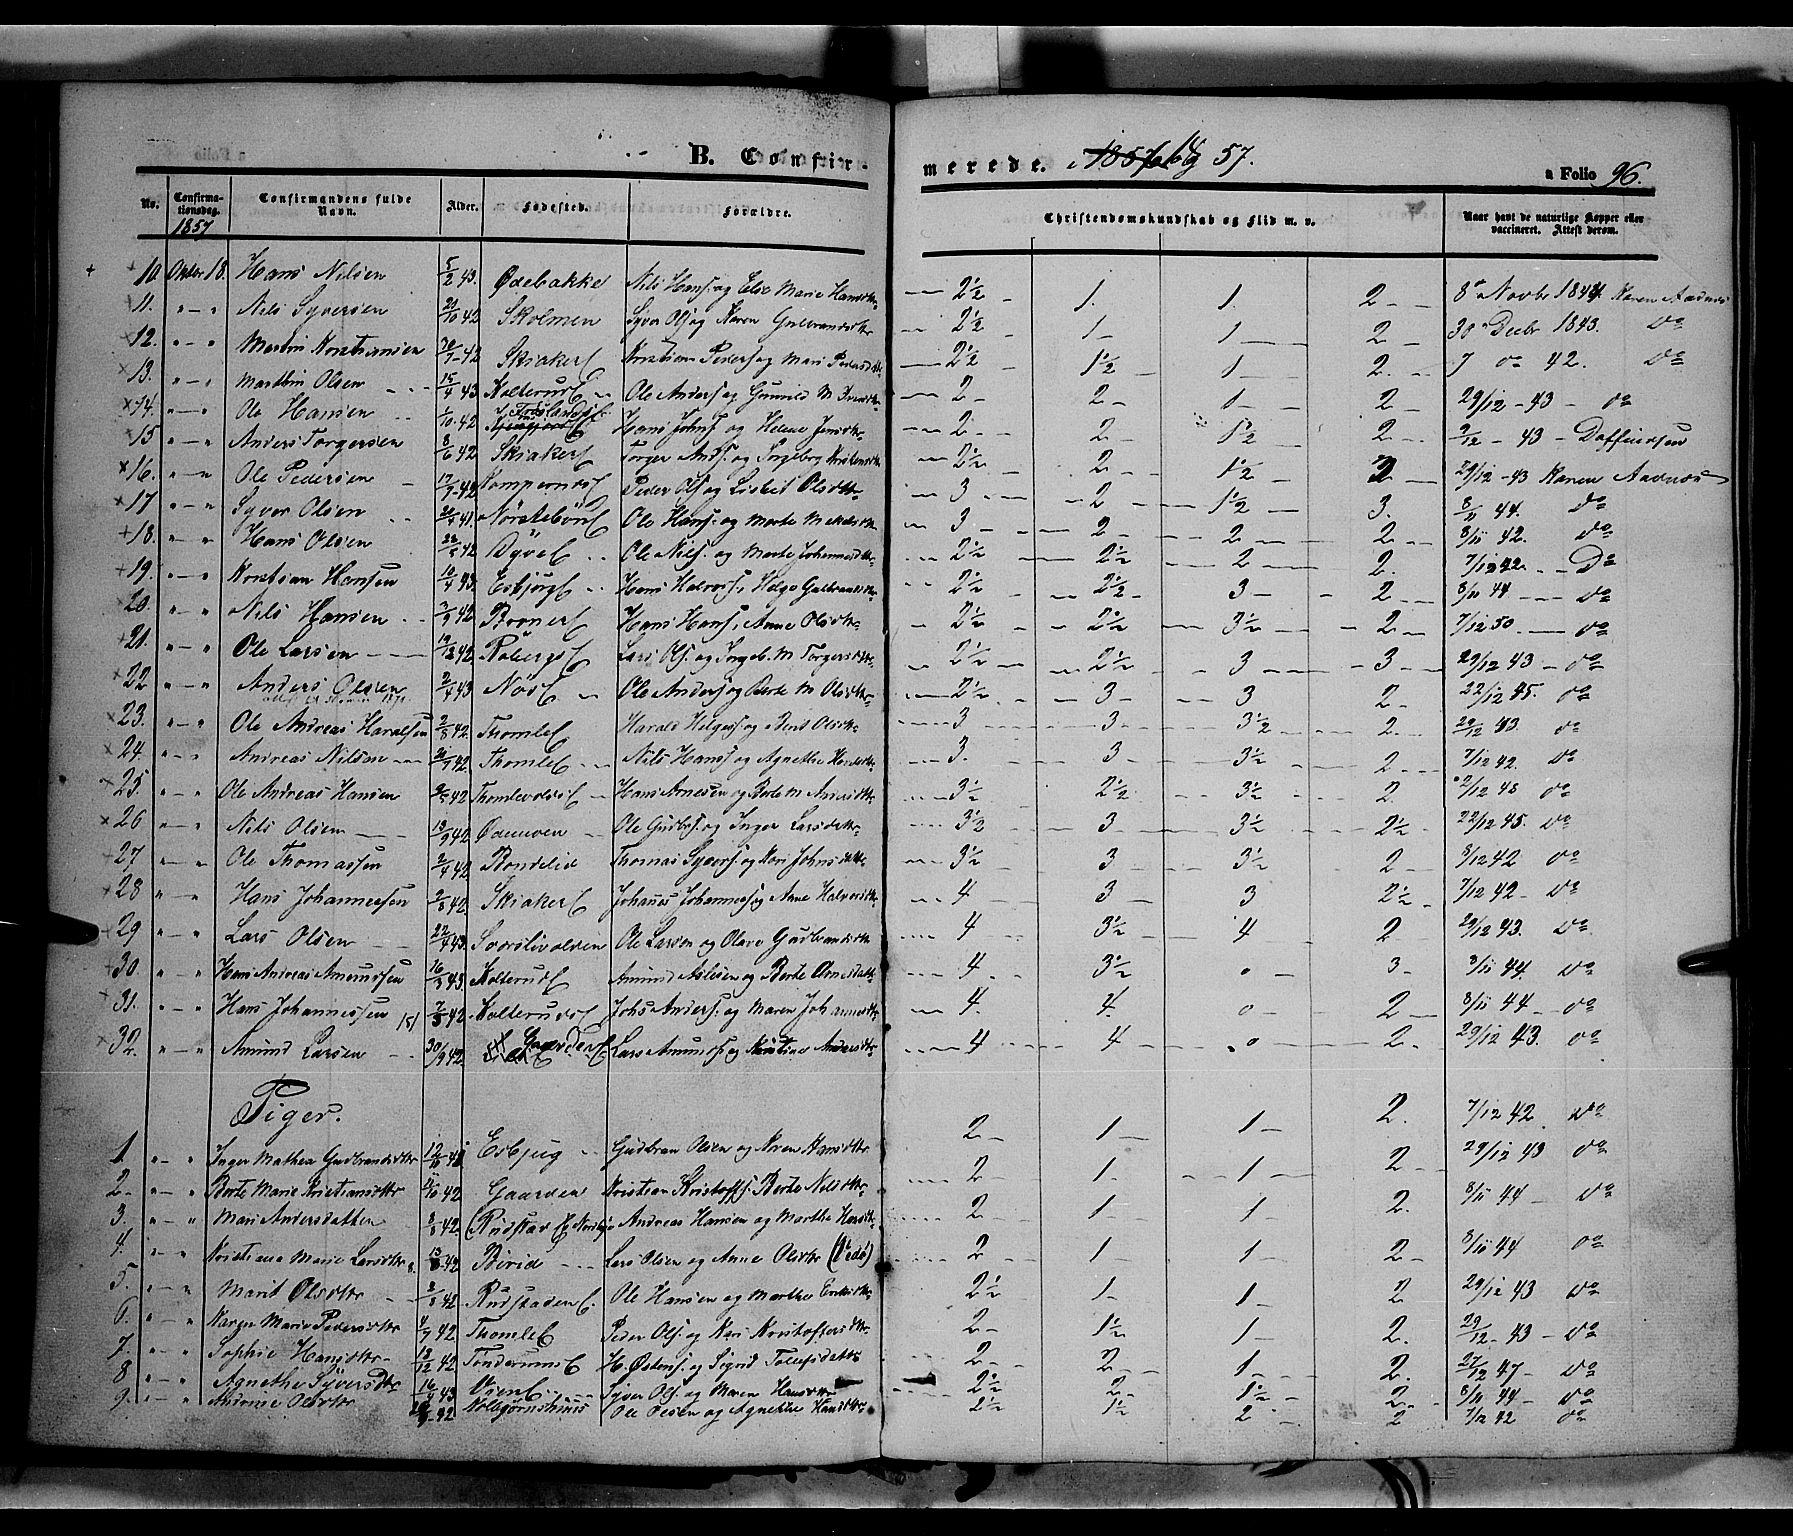 B. Confirmerede. 57.
a Folio 96.
No. Confirmationsdag. Confirmandens fulde Navn. Alder. Fødested. Forældre. Christendomskundskab og Flid m. v. Naar havt de naturlige Kopper eller vaccineret. Attest derom.
1857
10 Oktbr 18. Hans Nilsen 5/2 43. Ødebakke Nils Hans. og Else Marie Hansdtr 2½ 1. 1. 2 8 Novbr 1844. Karen Aadnes
11. Nils Syversen 42 Skolmen Syver Ols. og Karen Gulbrandsdtr 2½ 1 1 2 30 Decbr 1843. do
12. Martin Kristiansen 42 Skiaker Kristian Peders. og Mari Pedersdtr 2½ 1½ 1 2 7 do 42. do
13. Mathin Olsen 15/4 43 Kolterud Ole Anders. og Gunild M. 2 2 1 2 29/12 43 do
14. Ole Hansen 1/10 42 Hans Johs. og Helene Jensdtr 2 2 1½ 2 9/12 43
15 Anders Torgersen 8/6 42 Skiaker Torger Ands. og Ingeborg Kristensdtr 2½ 2 1½ 2 29/12 43 Karen Aadnes
16. Ole Pedersen 42 Peder Ols. og Lisbet Olsdtr 3 2 1½ 3. 8/11 44. do
17 Syver Olsen 41. Ole Hans. og Marte 3 2 2 2 8/11 42. do
18. Hans Olsen 42 Dyve Ole Nils. og Marte Johannesdtr 2½ 2½ 2 2. 7/12 42 do
19. Kristian Hansen 10/4 43. Esbjug Hans Halvors. Helge Gulbrandsdtr 2½ 2½ 3 2 8/11 44 do
20. Nils Hansen 42 Broner Hans Hans. Anne Olsdtr 2½ 2½ 3½ 2 7/12 50 do
21. Ole Larsen 42 Roberg Lars Ols. og Ingeb. M. Torgersdtr 2½ 2½ 3 3 29/12 43 do
22 Anders Olsen 2/4 43 Nøs Ole Anders. og Berte M. Olsdtr 2½ 3 3 2 22/12 45. do
23. Ole Andreas Haralsen 2/5 42. Thomle Harald Helges. og Berit Olsdtr 3 3 3½ 2 29/12 43 do
24. Andreas Nilsen 42. Thomle Nils Hans. og Agnethe 3. 3 3½ 2 7/12 42. do
25. Ole Andreas Hansen 42 Thomlevold Hans Arnesen og Berte M. Andersdtr 3½ 2½ 3½ 2 2/12 48 do
26 Nils Olsen 13/9 42 Ole Gudbr. og Inger Larsdatr 3½ 3 3½ 2½ 22/12 45. do
27 Ole Thomassen 2/4 42 Bondelid Thomas Syvers. og Kari Johnsdatr 3½ 3 3½ 2 8/12 42 do
28 Hans Johannessen 2/8 42. Skiaker Johanes Johanness. og Anne Halvorsdtr 4 3 3 2½ 7/12 42 do
29 Lars Olsen 22/4 43. Ole Larsen og Olave Gudbrandsdtr 4 3½ 4 2 29/12 43. do
30. Hans Andreas Amundsen 16/3 43. Kolterud Amund Aslesen og Berte Arnesdatr 4 3½ 0 3 8/11 44. do
31. Hans Johannessen 7/3 42 Kolterud Johs Anders. og Maren Johannesdtr 4. 4. 0 2 8/11 44 do
32. Amund Larsen 30/9 42. Gaarden Lars Amunds. og Kristine Andersdtr 4 4 0 2. 29/12 43. do
Piger.
1 Inger Mathea Gudbrandsdtr Esbjug Gudbran Olsen og Karen Hansdtr 2 1 1 2 7/12 42 do
2 Berte Marie Kristiansdtr 42 Gaarden Kristian Kristoffs. Berte Nilsdtr 2 1 1 2 29/12 43 do
3. Mari Andersdatter 42 Rudstad Andreas Hansen og Marthe Hansdtr 2 1 1 2. 8/11 44 do
4. Kristiana Marie Larsdtr 42 Birid Lars Olsen og Anne Olsdtr 2 1 1 2 8/11 44 do
5. Marit Olsdtr 42 Rudstaden Ole Hansen og Marthe Eriksdtr 2½ 1 1 2 29/12 43 do
6. Karen Marie Pedersdtr 4/7 42 Thomle Peder Ols. og Kari Kristoffersdtr 2 1½ 1 2. 29/12 43 do
7. Sophie Hansdtr 18/12 42 Tønderum H. Østens. og Sigrid Tollefsdatr 2 2 1 2. 27/12 47 do
8 Agnethe Syversdtr 16/4 43 Vien Syver Ols. og Maren Hansdtr 2½ 2 1½ 2 8/11 44 do
9. Andrine Olsdtr 42 Ole Olsen og Agnethe Hansdtr 2½ 1½ 2 2 7/12 42 do